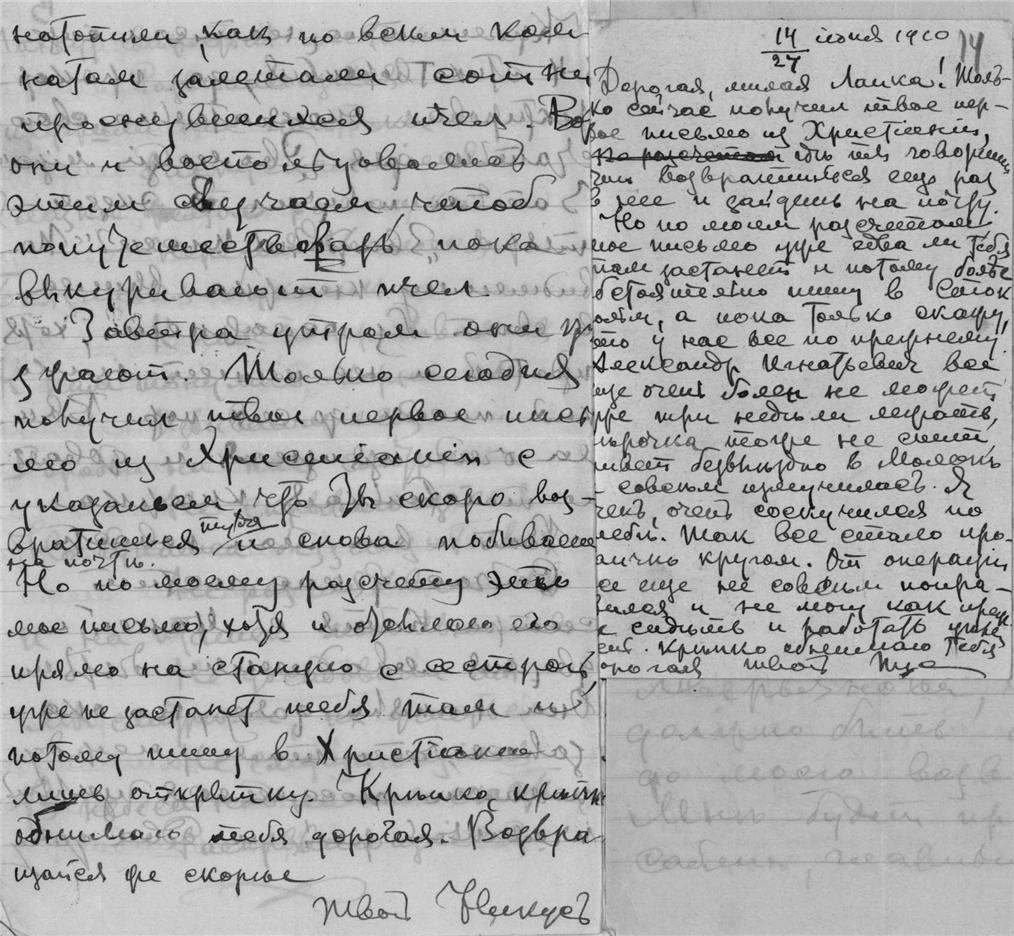 натопили, как по всем ком
натам залетали сотни
проснувшихся пчел. Вот
они и воспользовались
этим случаем, чтоб
попутешествовать, пока
выкуривают пчел.
Завтра утром они уѣ
зжают. Только сегодня
получил твое первое пись
мо из Христіаніи с
указаньем, что Ты скоро воз-
вратишься туда и снова побываешь
на почтѣ.
Но по моему разсчету это
мое письмо, хотя и
прямо на станцію с сестрой,
уже не застанет тебя там и
потому пишу в Христіанію
лишь открытку. Крѣпко, крѣпко
обнимаю тебя дорогая. Возвра
щайся же скорѣе
твой
14/27 іюня 1910
14
Дорогая, милая Лапка! Толь-
ко сейчас получил твое пер-
вое письмо из Христіаніи,
гдѣ ты говоришь
что возвратишься еще раз
в нее и зайдешь на почту.
Но по моим разсчетам
мое письмо уже едва ли тебя
там застанет и потому болѣе
обстоятельно пишу в Сток
гольм, а пока только скажу,
что у нас все по прежнему.
Александр Игнатьевич все
еще очень болен не может
уже три недѣли
тоже не спит,
живет безвыѣздно в
совсѣм измучилась. Я
очень, очень соскучился по
тебѣ. Так все стало про-
заично кругом. От операціи
все еще не совсѣм попра-
вился и не могу как преж
сидѣть и работать
Крѣпко обнимаю Тебя
дорогая твой